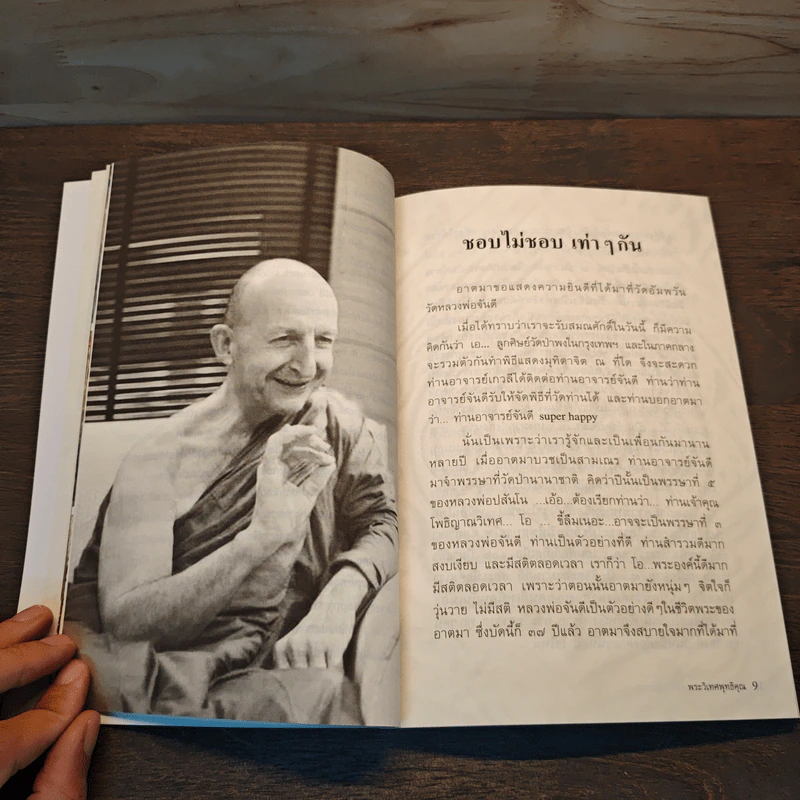 ชอบไม่ชอบ เท่า ๆ กัน
อาตมาขอแสดงความยินดีที่ได้มาที่วัดอัมพวัน
วัดหลวงพ่อจันดี
เมื่อได้ทราบว่าเราจะรับสมณศักดิ์ในวันนี้ ก็มีความ
คิดกันว่า เอ... ลูกศิษย์วัดป่าพงในกรุงเทพฯ และในภาคกลาง
จะรวมตัวกันทำพิธีแสดงมุทิตาจิต ณ ที่ใด จึงจะสะดวก
ท่านอาจารย์เกวลีได้ติดต่อท่านอาจารย์จันดี ท่านว่าท่าน
อาจารย์จันดีรับให้จัดพิธีที่วัดท่านได้ และท่านบอกอาตมา
ว่า... ท่านอาจารย์จันดี super happy
นั่นเป็นเพราะว่าเรารู้จักและเป็นเพื่อนกันมานาน
หลายปี เมื่ออาตมาบวชเป็นสามเณร ท่านอาจารย์จันดี
มาจำพรรษาที่วัดป่านานาชาติ คิดว่าปีนั้นเป็นพรรษาที่ ๕
ของหลวงพ่อปสันโน ...เอ้อ...ต้องเรียกท่านว่า... ท่านเจ้าคุณ
โพธิญาณวิเทศ... โอ ... ขี้ลืมเนอะ...อาจจะเป็นพรรษาที่ ๓
ของหลวงพ่อจันดี ท่านเป็นตัวอย่างที่ดี ท่านสำรวมดีมาก
สงบเงียบ และมีสติตลอดเวลา เราก็ว่า โอ...พระองค์นี้ดีมาก
มีสติตลอดเวลา เพราะว่าตอนนั้นอาตมายังหนุ่มๆ จิตใจก็
วุ่นวาย ไม่มีสติ หลวงพ่อจันดีเป็นตัวอย่างดีๆในชีวิตพระของ
อาตมา ซึ่งบัดนี้ก็ ๓๗ ปีแล้ว อาตมาจึงสบายใจมากที่ได้มาที่
พระวิเทศพุทธิคุณ 9